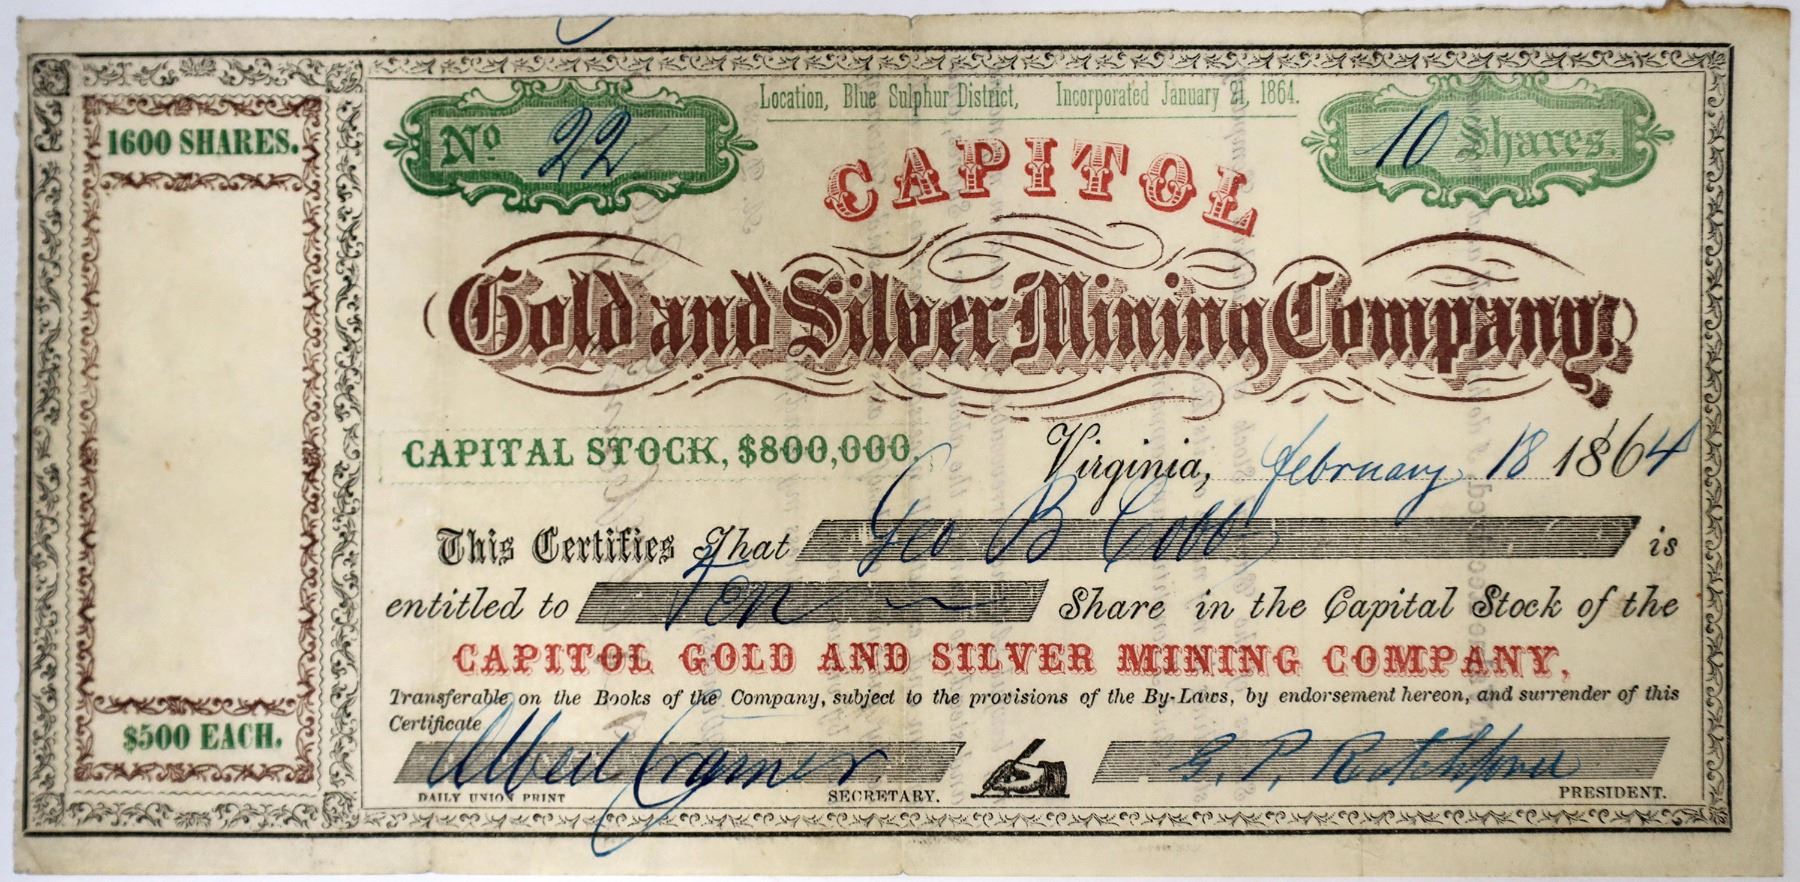 1600 SHARES.
$500 EACH.
Location, Blue Sulphur District, Incorporated January 21, 1864.
No 22
10 Shares.
CAPITOL
Gold and Silver Mining Company.
CAPITAL STOCK, $800,000. Virginia, February 18 1864
This Certifies That Geo B Cobb is
entitled to Ten Share in the Capital Stock of the
CAPITOL GOLD AND SILVER MINING COMPANY,
Transferable on the Books of the Company, subject to the provisions of the By-Laws, by endorsement hereon, and surrender of this
Certificate
Albert Cramer G. P.
DAILY UNION PRINT SECRETARY. PRESIDENT.